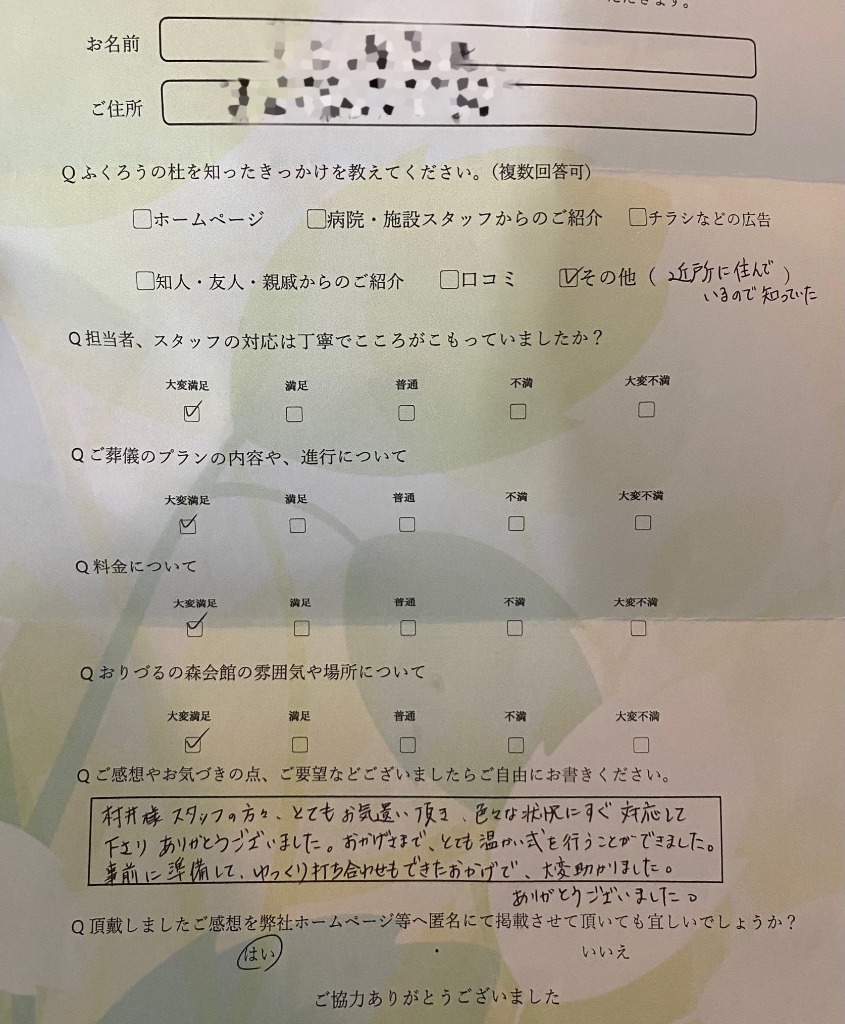 お名前
ご住所
Q ふくろうの杜を知ったきっかけを教えてください。(複数回答可)
□ホームページ □病院・施設スタッフからのご紹介 □チラシなどの広告
□知人・友人・親戚からのご紹介 □口コミ ☑その他 ( 近所に住んで )
いるので知っていた
Q 担当者、スタッフの対応は丁寧でこころがこもっていましたか?
大変満足 満足 普通 不満 大変不満
☑ □ □ □ □
Q ご葬儀のプランの内容や、進行について
大変満足 満足 普通 不満 大変不満
☑ □ □ □ □
Q 料金について
大変満足 満足 普通 不満 大変不満
☑ □ □ □ □
Q おりづるの森会館の雰囲気や場所について
大変満足 満足 普通 不満 大変不満
☑ □ □ □ □
Q ご感想やお気づきの点、ご要望などございましたらご自由にお書きください。
村井様 スタッフの方々、とてもお気遣い頂き、色々な状況にすぐ対応して
下さり ありがとうございました。おかげさまで、とても温かい式を行うことができました。
事前に準備して、ゆっくり打ち合わせもできたおかげで、大変助かりました。
ありがとうございました。
Q 頂戴しましたご感想を弊社ホームページ等へ匿名にて掲載させて頂いても宜しいでしょうか?
はい ・ いいえ
ご協力ありがとうございました